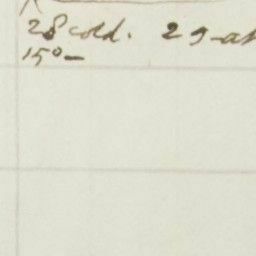 28 cold. 29 - at
15° -